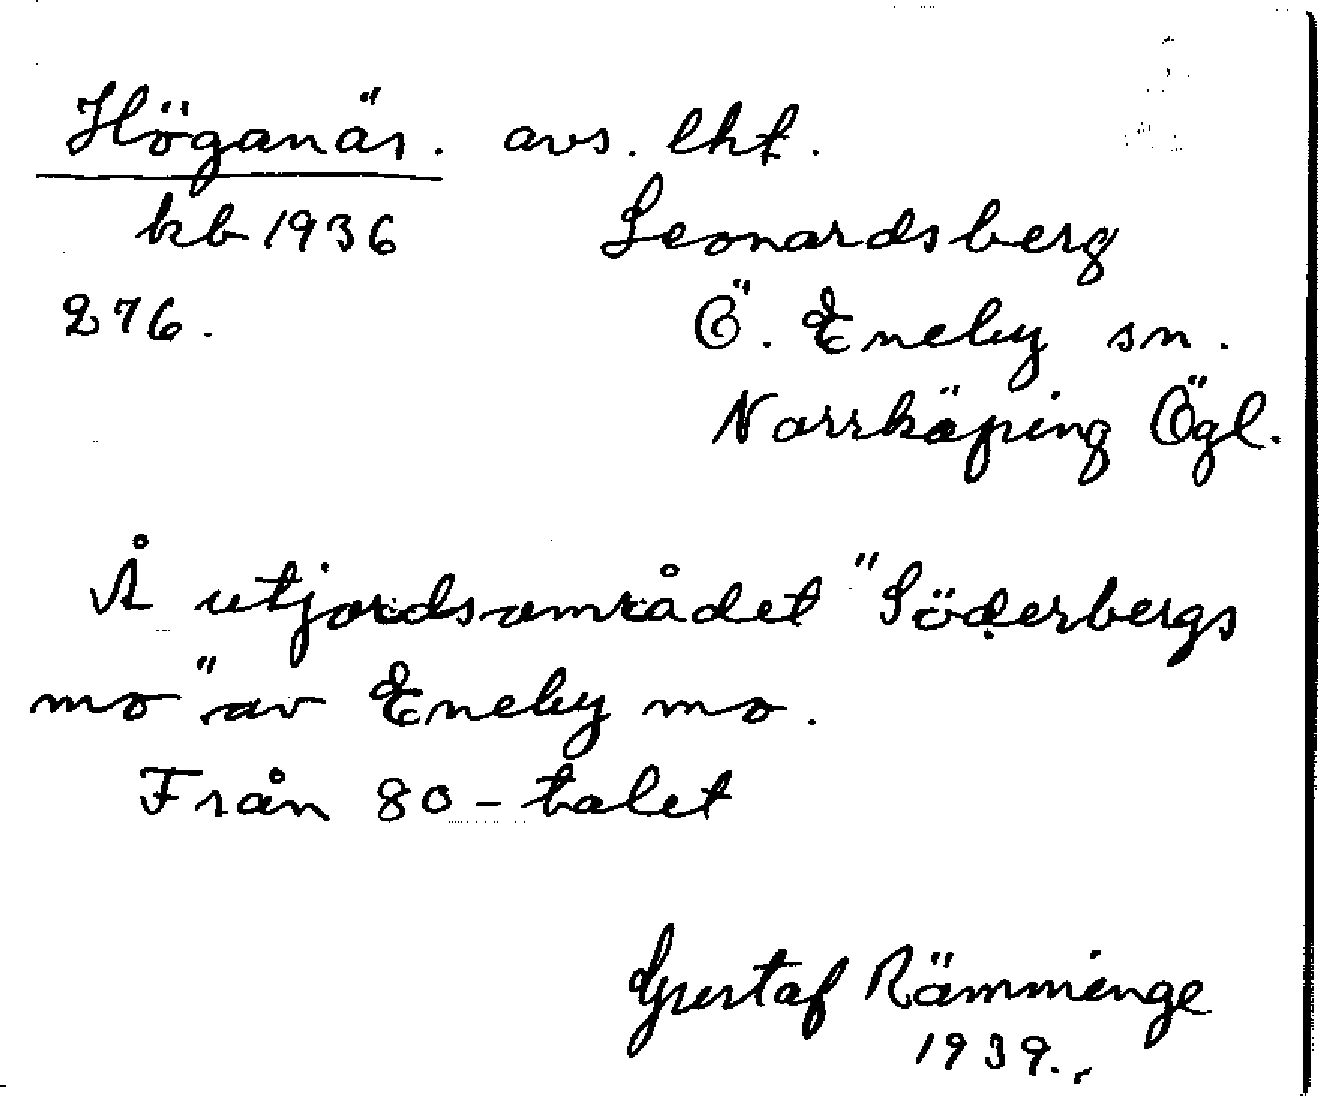 Höganäs. avs. lht.
kb 1936 Leonardsberg
276. Ö. Eneby sn.
Norrköping Ögl.
Å utjordsområdet "Söderbergs
mo" av Eneby mo.
Från 80-talet
Gustaf Rämminge
1939.